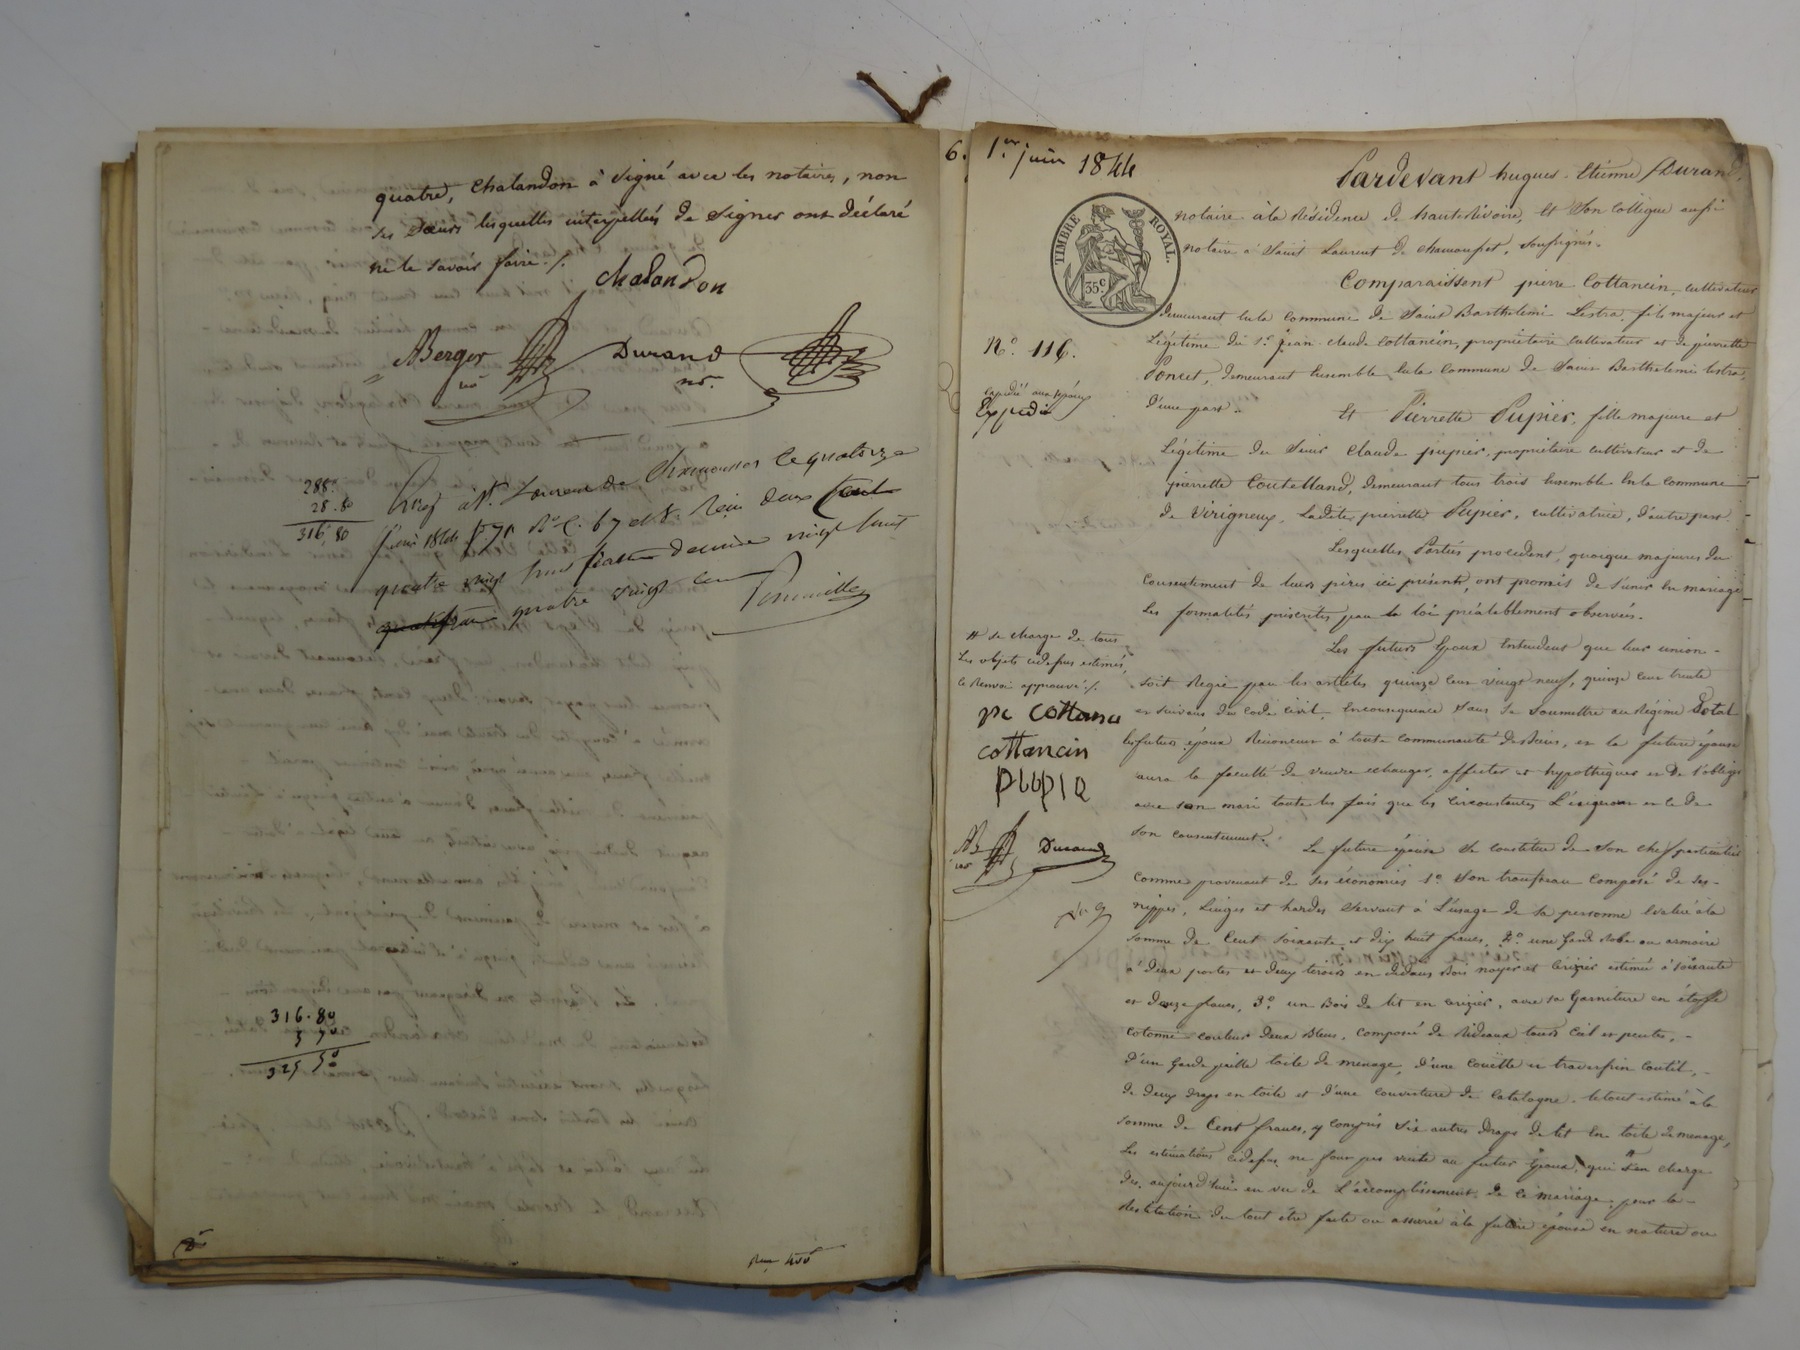 quatre, chalandon à signé avec les notaires, non
ses sœurs lesquelles interpellées de signer ont déclaré
ne le savoir faire ./.
chalandon
ABerger
Durand
nre
nre.
288.
28.80
316.80
Enreg. à St. Laurent de Chamousset le quatorze
juin 1844 f. 71 Ro C. 6 7 et 8 Reçu deux cent
quatre vingt huit francs decime vingt huit
quatre vingt cen
316.80
325 50
6.
1.er juin 1844
Pardevant hugues Etienne Durand,
TIMBRE ROYAL.
35c.
notaire à la Résidence de hauterivoire, Et Son Collègue aussi
notaire à Saint Laurent de chamousset, soussignés.
Comparaissent pierre Cottancin, cultivateur
demeurant en la Commune de Saint Barthelemi Lestra, fils majeur et
No. 116.
Légitime du Sr. jean claude Cottancin, propriétaire cultivateur et de pierrette
Poncet, demeurant Ensemble en la Commune de Saint Barthelemi lestra,
expédié aux époux
Expédié
d'une part.
Et Pierrette Pupier, fille majeure et
Légitime du Sieur Claude pupier, propriétaire cultivateur et de
pierrette Coutelland, demeurant tous trois Ensemble En la Commune
de Virigneux, Ladite pierrette Pupier, cultivatrice, d'autre part.
Lesquelles Parties procedent, quoique majeures du
Consentement de leurs pères ici présents, ont promis de s'unir en mariage
Les formalités prescrites par la loi préalablement observées.
Les futurs Epoux Entendent que leur union
# se charge de tous
Les objets cidessus estimés,
le Renvoi approuvé ./.
soit Régie par les articles quinze cent vingt neuf, quinze cent trente
et suivans du Code Civil, Enconsequence Sans se soumettre au Régime Dotal
pc cottance
les futurs époux Renoncent à toute communauté de biens, et la future épouse
cottancin
aura la faculté de vendre echanger, affecter et hypothéquer et De s'obliger
pupie
avec son mari toutes les fois que les Circonstances L'exigeront et ce de
AB
nre
Durand
Son consentement.
La future épouse se constitue de Son chef particulier
Comme provenant de ses économies 1o. Son trousseau Composé de ses
nippes, Linges et hardes servant à L'usage de sa personne Evalué à la
somme de Cent soixante et dix huit francs, 2o. une Garde Robe ou armoire
à deux portes et deux tiroirs en dedans bois noyer et Cerizier estimée à soixante
et douze francs, 3o. un Bois de lit en cerizier, avec sa Garniture en étoffe
cotonne couleur deux Bleus, composée de Rideaux tours Ciel et pentes,
d'un Garde paille toile de menage, d'une couëtte et traversin coutil,
de deux draps en toile et d'une couverture de Catalogne. le tout estimé à la
somme de Cent francs, y compris Six autres draps de lit En toile de menage,
Les estimations cidessus ne font pas vente au futur Epoux, qui # en charge
dès aujourd'hui en vue de L'accomplissement de ce mariage pour la
Restitution du tout être faite ou assurée à la future épouse en nature ou